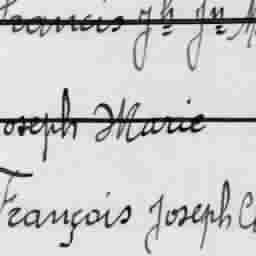 Francis Jh Jn M
Joseph Marie
François Joseph C